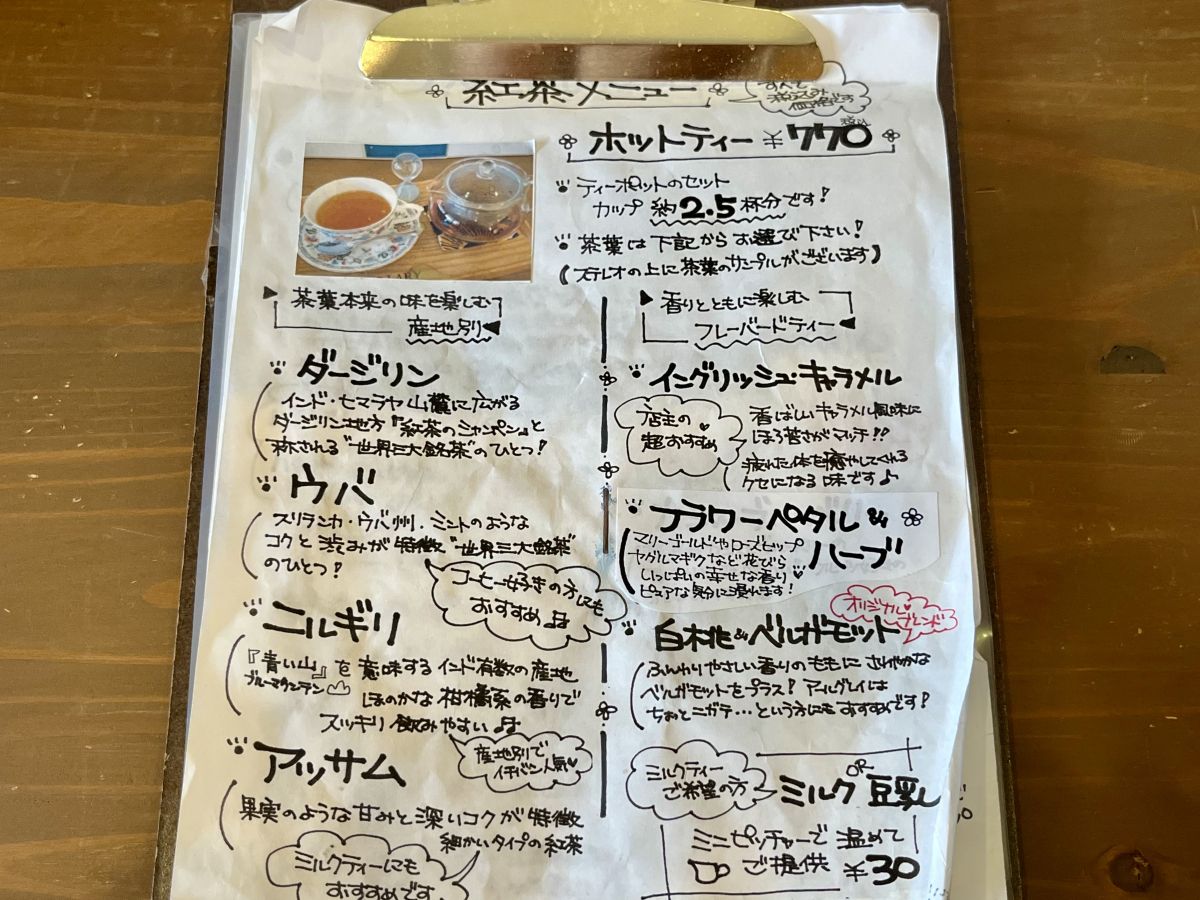 紅茶メニュー
すべて
税込み
価格です
ホットティー ¥770
税込
ティーポットのセット
カップ 約2.5杯分です!
茶葉は下記からお選び下さい!
(ステレオの上に茶葉のサンプルがございます)
茶葉本来の味を楽しむ
産地別
ダージリン
インド・ヒマラヤ山麓に広がる
ダージリン地方『紅茶のシャンパン』と
称される"世界三大銘茶"のひとつ!
ウバ
スリランカ・ウバ州.ミントのような
コクと渋みが特徴"世界三大銘茶"
のひとつ!
コーヒー好きの方にも
おすすめ♫
ニルギリ
『青い山』を意味するインド有数の産地
ブルーマウンテン
ほのかな柑橘系の香りで
スッキリ飲みやすい♫
産地別で
イチバン人気♥
アッサム
果実のような甘みと深いコクが特徴
細かいタイプの紅茶
ミルクティーにも
おすすめです
香りとともに楽しむ
フレーバードティー
イングリッシュ・キャラメル
店主の
超おすすめ♥
香ばしいキャラメル風味に
ほろ苦さがマッチ!!
疲れた体を癒やしてくれる
クセになる味です♪
フラワーペタル&
ハーブ
マリーゴールドやローズヒップ
ヤグルマギクなど花びら
いっぱいの幸せな香り♥
ピュアな気分に浸れます!
オリジナル♥
ブレンド
白桃&ベルガモット
ふんわりやさしい香りのももに さわやかな
ベルガモットをプラス! アールグレイは
ちょっとニガテ…という方にもおすすめです!
ミルクティー
ご希望の方
ミルク OR 豆乳
ミニピッチャーで 温めて
ご提供 ¥30